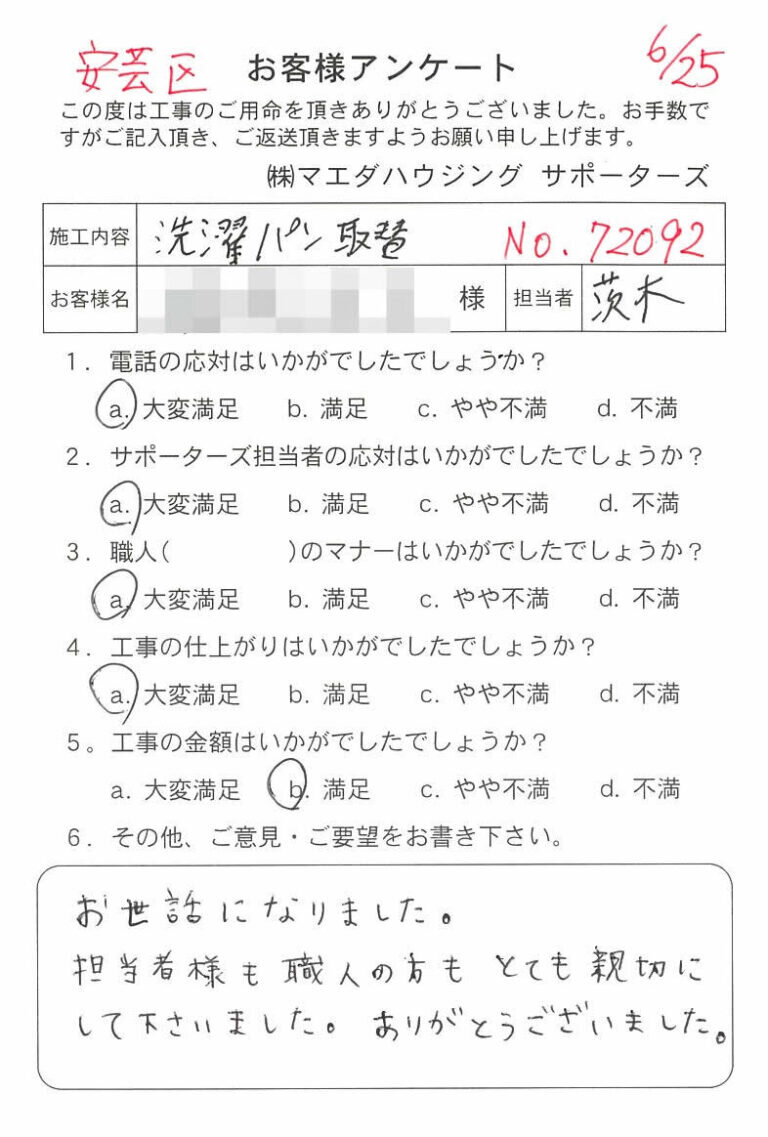 安芸区 お客様アンケート 6/25
この度は工事のご用命を頂きありがとうございました。お手数で
すがご記入頂き、ご返送頂きますようお願い申し上げます。
㈱マエダハウジング サポーターズ
施工内容 洗濯パン取替 No.72092
お客様名 様 担当者 茨木
1. 電話の応対はいかがでしたでしょうか?
a. 大変満足 b. 満足 c. やや不満 d. 不満
2. サポーターズ担当者の応対はいかがでしたでしょうか?
a. 大変満足 b. 満足 c. やや不満 d. 不満
3. 職人( )のマナーはいかがでしたでしょうか?
a. 大変満足 b. 満足 c. やや不満 d. 不満
4. 工事の仕上がりはいかがでしたでしょうか?
a. 大変満足 b. 満足 c. やや不満 d. 不満
5。工事の金額はいかがでしたでしょうか?
a. 大変満足 b. 満足 c. やや不満 d. 不満
6. その他、ご意見・ご要望をお書き下さい。
お世話になりました。
担当者様も職人の方もとても親切に
して下さいました。ありがとうございました。